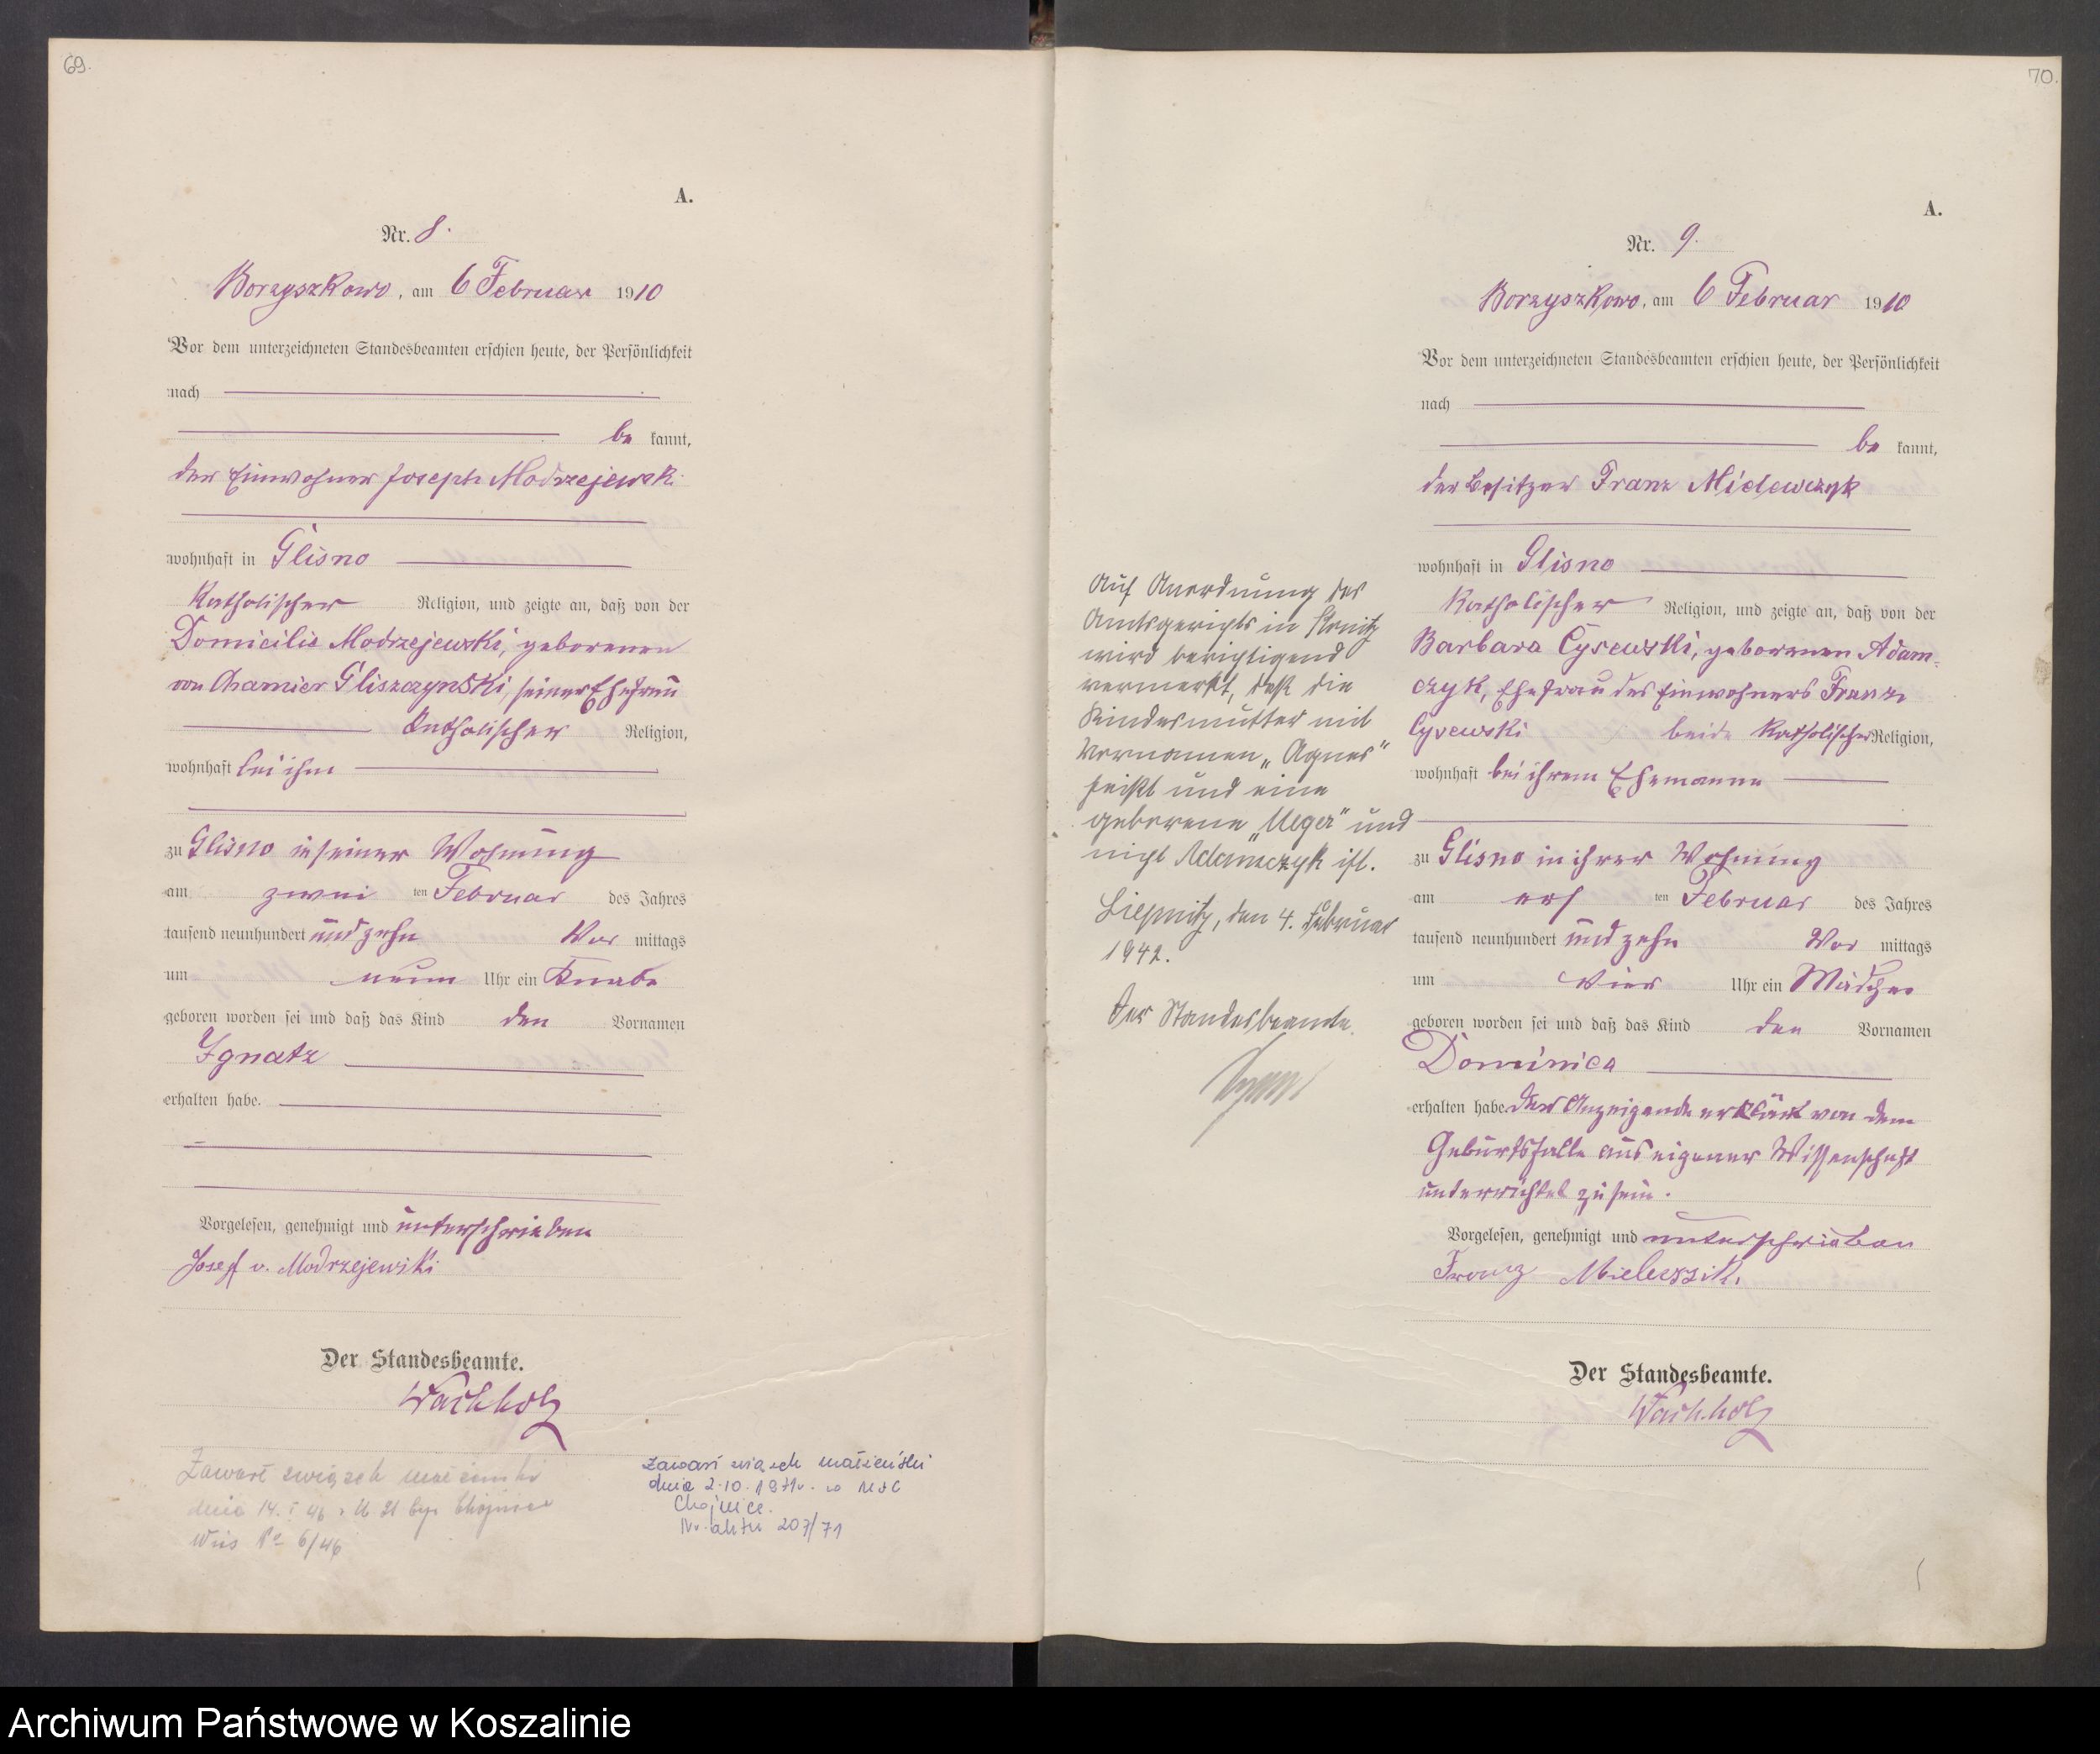 69.
A.
Nr. 8.
Borzyszkowo, am 6 Februar 1910
Vor dem unterzeichneten Standesbeamten erschien heute, der Persönlichkeit
nach
be kannt,
der Einwohner Joseph Modrzejewski
wohnhaft in Glisno
Katholischer Religion, und zeigte an, daß von der
Domicilie Modrzejewski, geborenen
von Chamier Gliszczynski, seiner Ehefrau
Katholischer Religion,
wohnhaft bei ihm
zu Glisno in seiner Wohnung
am zwei ten Februar des Jahres
tausend neunhundert und zehn Vor mittags
um neun Uhr ein Knabe
geboren worden sei und daß das Kind den Vornamen
Ignatz
erhalten habe.
Vorgelesen, genehmigt und unterschrieben
Josef v. Modrzejewski
Der Standesbeamte.
Wachholz
Zawarł związek małżeński
dnia 14. I 46
6/46
Zawarł związek małżeński
dnia 2.10.1971r. w USC
Chojnice.
Nr. aktu 207/71
70.
A.
Nr. 9.
Borzyszkowo, am 6 Februar 1910
Vor dem unterzeichneten Standesbeamten erschien heute, der Persönlichkeit
nach
be kannt,
der Besitzer Franz Mielewczyk
wohnhaft in Glisno
Katholischer Religion, und zeigte an, daß von der
Barbara Cysewski, geborenen Adam-
czyk, Ehefrau des Einwohners Franz
Cysewski beide Katholischer Religion,
wohnhaft bei ihrem Ehemanne
zu Glisno in ihrer Wohnung
am ers ten Februar des Jahres
tausend neunhundert und zehn Vor mittags
um vier Uhr ein Mädchen
geboren worden sei und daß das Kind den Vornamen
Dominica
erhalten habe. Der Anzeigende erklärt von dem
Geburtsfalle aus eigener Wissenschaft
unterrichtet zu sein.
Vorgelesen, genehmigt und unterschrieben
Franz Mielewszik.
Der Standesbeamte.
Wachholz
Auf Anordnung des
Amtsgerichts in Konitz
wird berichtigend
vermerkt, daß die
Kindesmutter mit
Vornamen „Agnes"
heißt und eine
geborene „Weger" und
nicht Adamczyk ist.
Liepnitz, den 4. Februar
1942.
Der Standesbeamte.
Archiwum Państwowe w Koszalinie